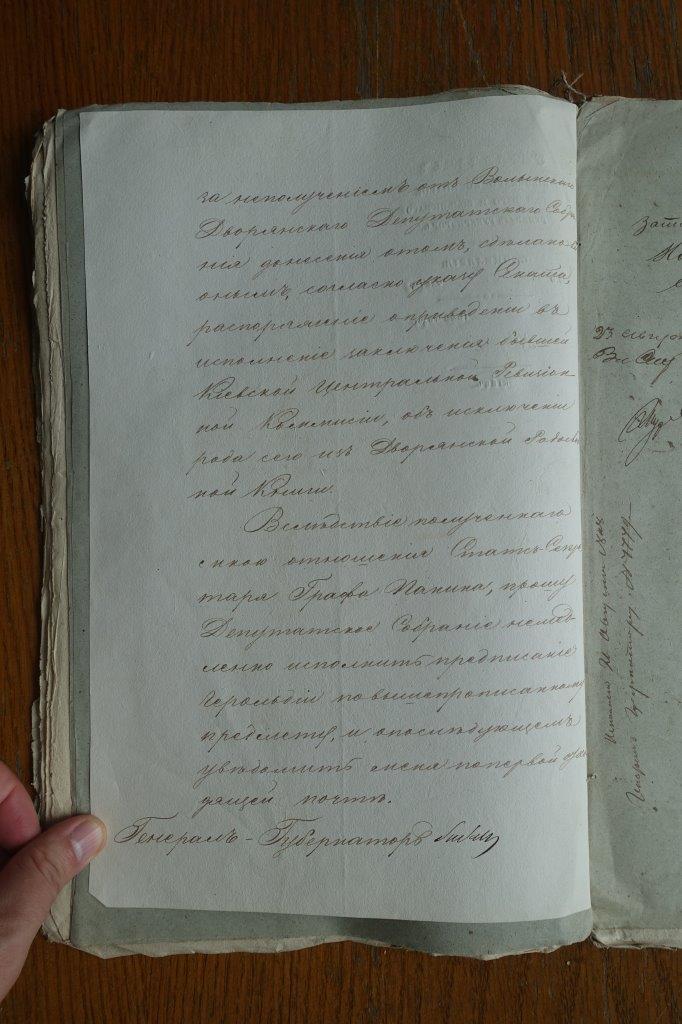 за неполученіемъ отъ Волынскаго
Дворянскаго Депутатскаго Собра
нія донесенія отомъ, сдѣлано ли
онымъ, согласно указу Сената,
распоряженіе оприведеніи въ
исполненіе заключенія бывшей
Кіевской Центральной Ревизіон
ной Коммисіи, объ исключеніи
рода сего изъ Дворянской Родослов
ной Книги.
Вслѣдствіе полученнаго
мною отношенія Статсъ-Секре
таря Графа Панина, прошу
Депутатское Собраніе немед-
ленно исполнить предписаніе
Герольдіи по вышепрописанному
предмету, и опослѣдующемъ
увѣдомить меня попервой отхо
дящей почтѣ.
Генералъ-Губернаторъ Бибиковъ
23 августа